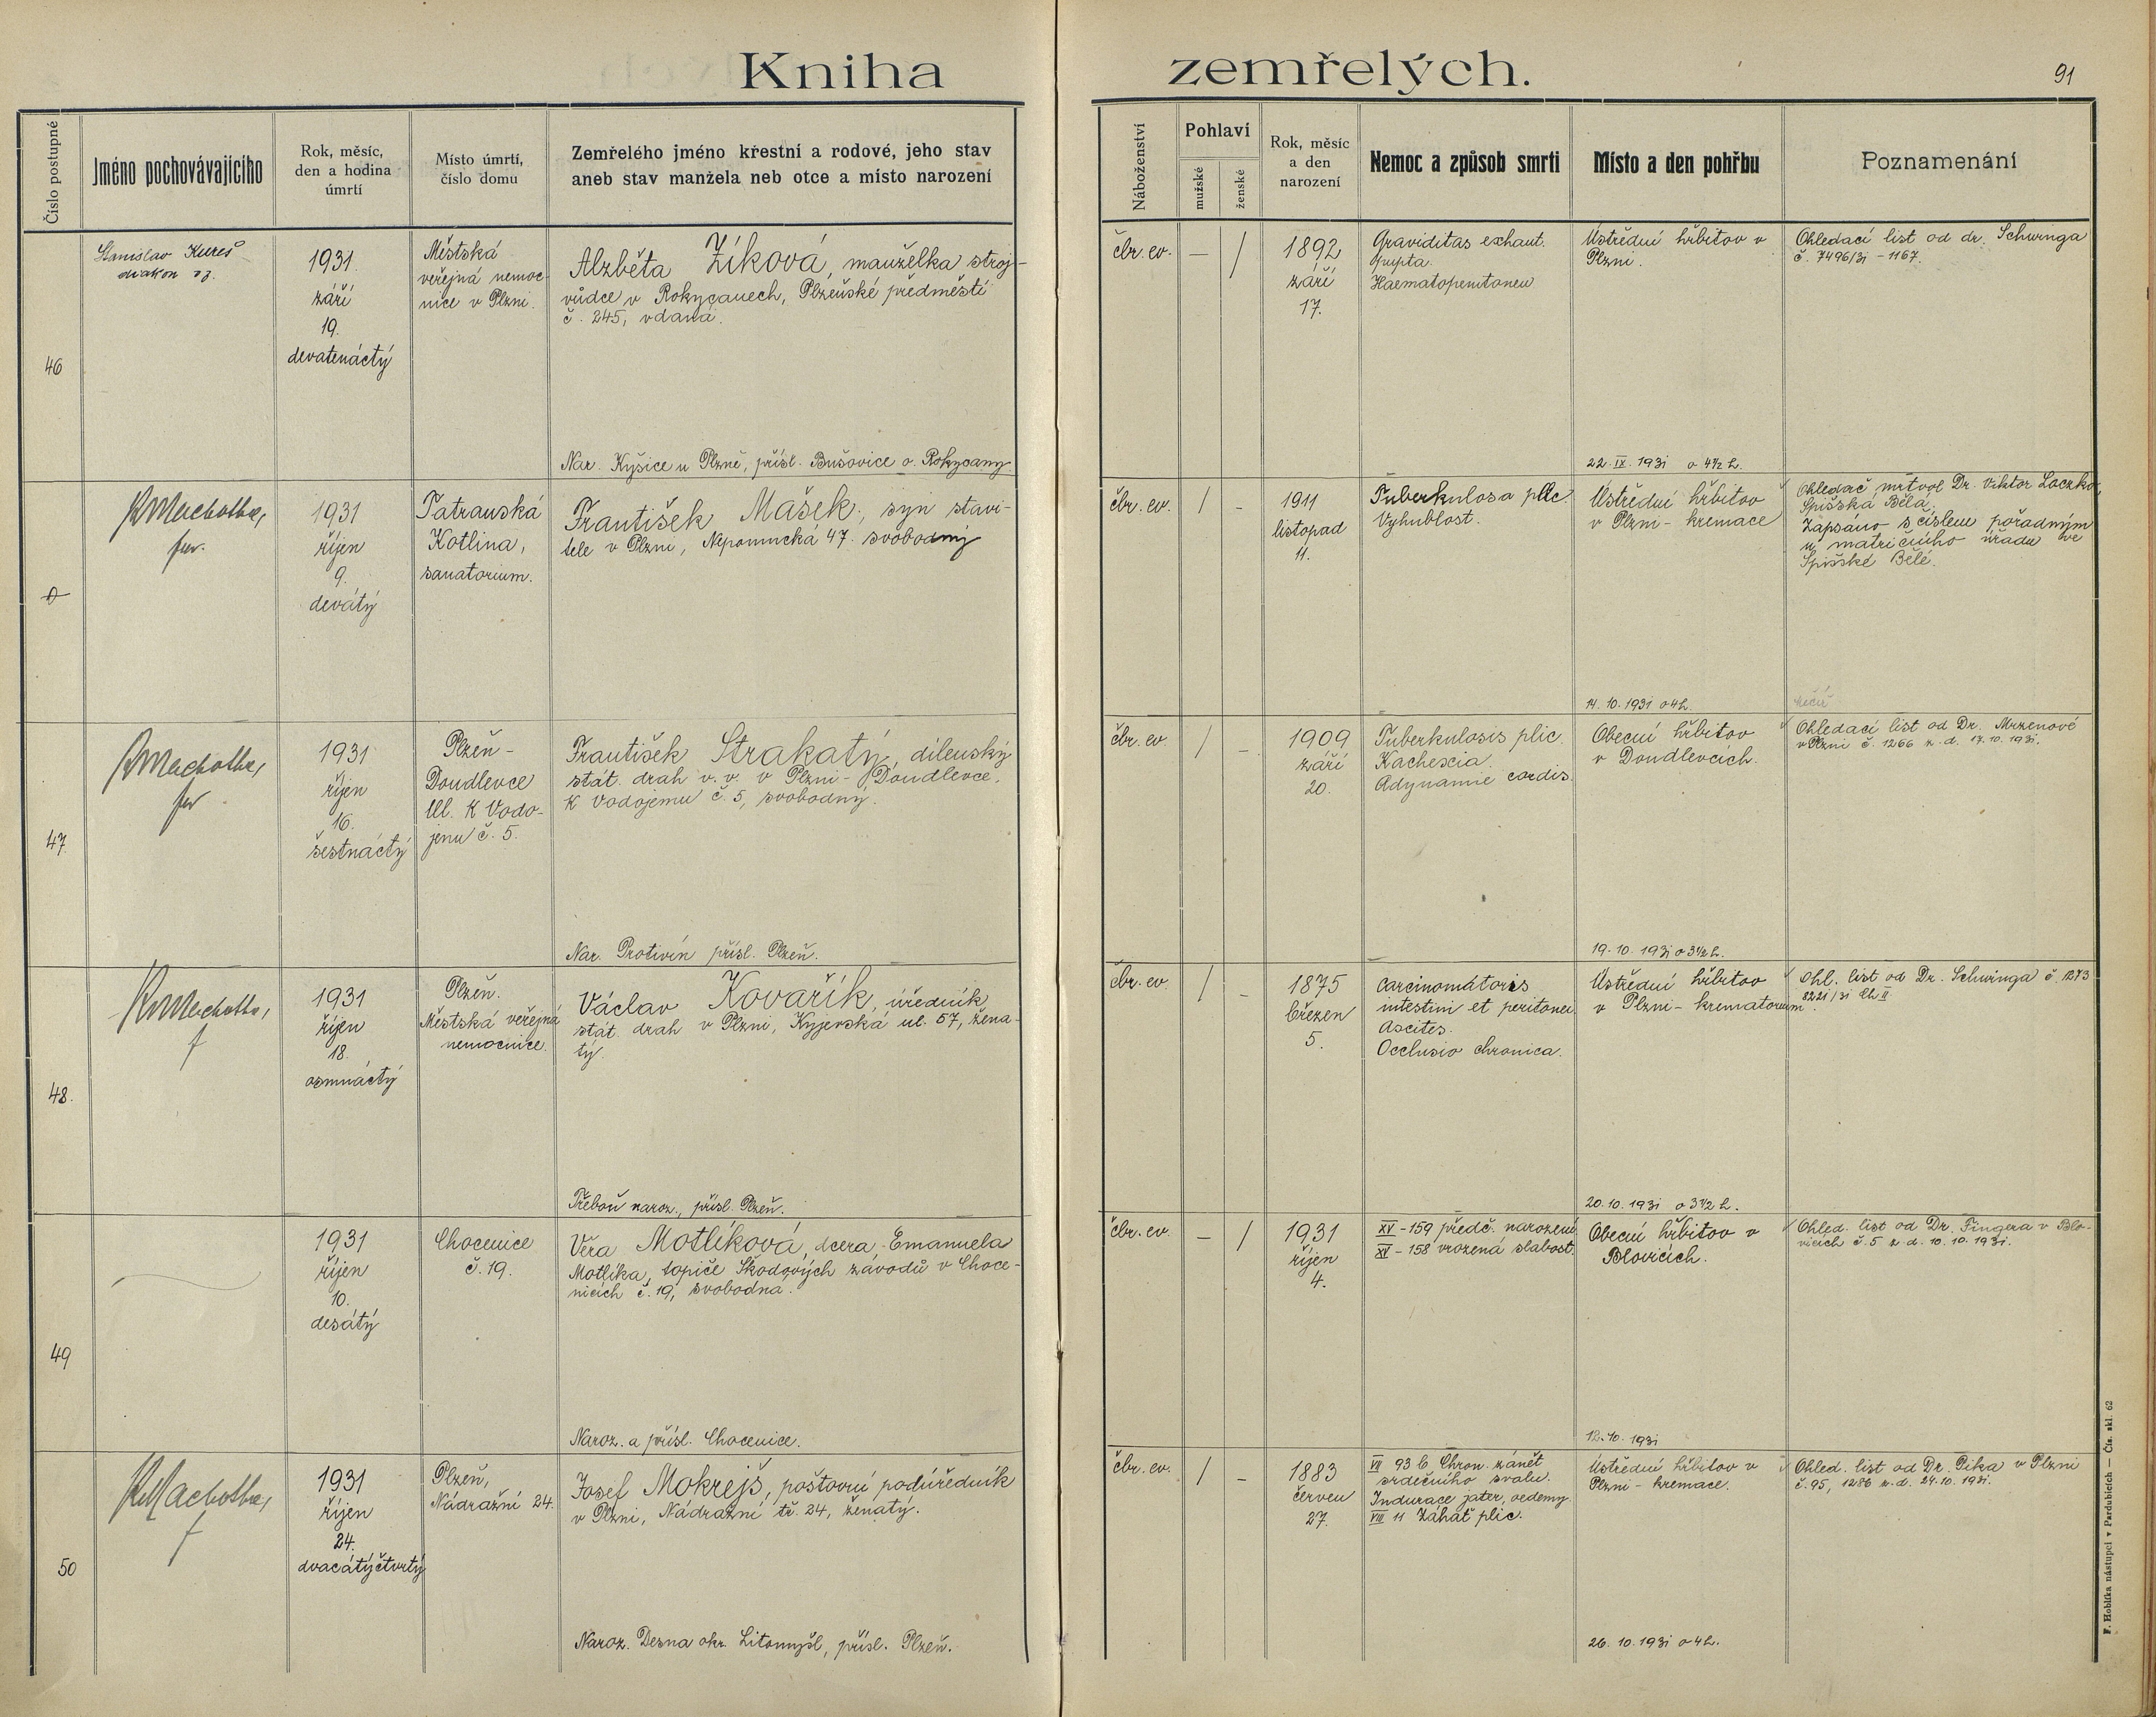 Kniha zemřelých.
91
Číslo postupné
Jméno pochovávajícího
Rok, měsíc,
den a hodina
úmrtí
Místo úmrtí,
číslo domu
Zemřelého jméno křestní a rodové, jeho stav
aneb stav manžela neb otce a místo narození
Náboženství
Pohlaví
mužské
ženské
Rok, měsíc
a den
narození
Nemoc a způsob smrti
Místo a den pohřbu
Poznamenání
46
Stanislav
diakon
1931
září
19.
devatenáctý
Městská
veřejná nemoc-
nice v Plzni.
Alzběta Zíková, manželka stroj-
vůdce v Rokycanech, Plzeňské předměstí
č. 245, vdaná.
Nar. Kyšice u Plzně, přísl. Bušovice o. Rokycany.
čbr. ev.
— /
1892
září
17.
Graviditas exhaut.
Haematoperitoneu
Ústřední hřbitov v
Plzni.
22. IX. 1931 o 4½ h.
Ohledací list od dr. Schwinga
č. 7496/31 - 1167.
0
Machotka,
far.
1931
říjen
9.
devátý
Tatranská
Kotlina,
sanatorium.
František Mašek, syn stavi-
tele v Plzni, Nepomucká 47. svobodný
čbr. ev.
/ -
1911
listopad
11.
Tuberkulosa plic
Vyhublost.
Ústřední hřbitov
v Plzni - kremace
14. 10. 1931 o 4 h.
Ohledač mrtvol Dr. Viktor Loczko,
Spišská Bělá,
Zapsáno s číslem pořadným
u matričního úřadu ve
Spišské Bělé.
47
Machotka,
far
1931
říjen
16.
šestnáctý
Plzeň -
Doudlevce
Ul. K Vodo-
jemu č. 5.
František Strakatý, dílenský
stát. drah v. v. v Plzni - Doudlevce,
K Vodojemu č. 5, svobodný.
Nar. Protivín přísl. Plzeň.
čbr. ev.
/ -
1909
září
20.
Tuberkulosis plic.
Kachexia.
Adynamie cordis.
Obecní hřbitov
v Doudlevcích.
19. 10. 1931 o 3½ h.
Ohledací list od Dr. Mrzenové
v Plzni č. 1266 z. d. 17. 10. 1931.
48.
Machotka,
f
1931
říjen
18.
osmnáctý
Plzeň.
Městská veřejná
nemocnice.
Václav Kovařík, úředník
stát. drah v Plzni, Kyjevská ul. 57, žena-
tý.
Třeboň naroz., přísl. Plzeň.
čbr. ev.
/ -
1875
březen
5.
Carcinomátoris
intestini et peritonei.
Ascites.
Occlusio chronica.
Ústřední hřbitov
v Plzni - krematorium.
20. 10. 1931 o 3½ h.
Ohl. list od Dr. Schwinga č. 1273
8221/31 Ch II.
49
1931
říjen
10.
desátý
Chocenice
č. 19.
Věra Motlíková, dcera Emanuela
Motlíka, topiče Škodových závodů v Choce-
nicích č. 19, svobodná.
Naroz. a přísl. Chocenice.
čbr. ev.
— /
1931
říjen
4.
XV - 159 předč. narození
XV - 158 vrozená slabost.
Obecní hřbitov v
Blovicích.
12. 10. 1931
Ohled. list od Dr. Fingera v Blo-
vicích č. 5 z d. 10. 10. 1931.
50
Machotka,
f
1931
říjen
24.
dvacátýčtvrtý
Plzeň,
Nádražní 24.
Josef Mokrejš, poštovní podúředník
v Plzni, Nádražní tř. 24, ženatý.
Naroz. Desna okr. Litomyšl, přísl. Plzeň.
čbr. ev.
/ -
1883
červen
27.
VII 93 b Chron. zánět
srdečního svalu.
Indurace jater, oedemy.
VIII 11 Záhať plic.
Ústřední hřbitov v
Plzni - kremace.
26. 10. 1931 o 4 h.
Ohled. list od Dr. Pika v Plzni
č. 95, 1286 z. d. 24. 10. 1931.
F. Hoblíka nástupci v Pardubicích — Čís. skl. 62